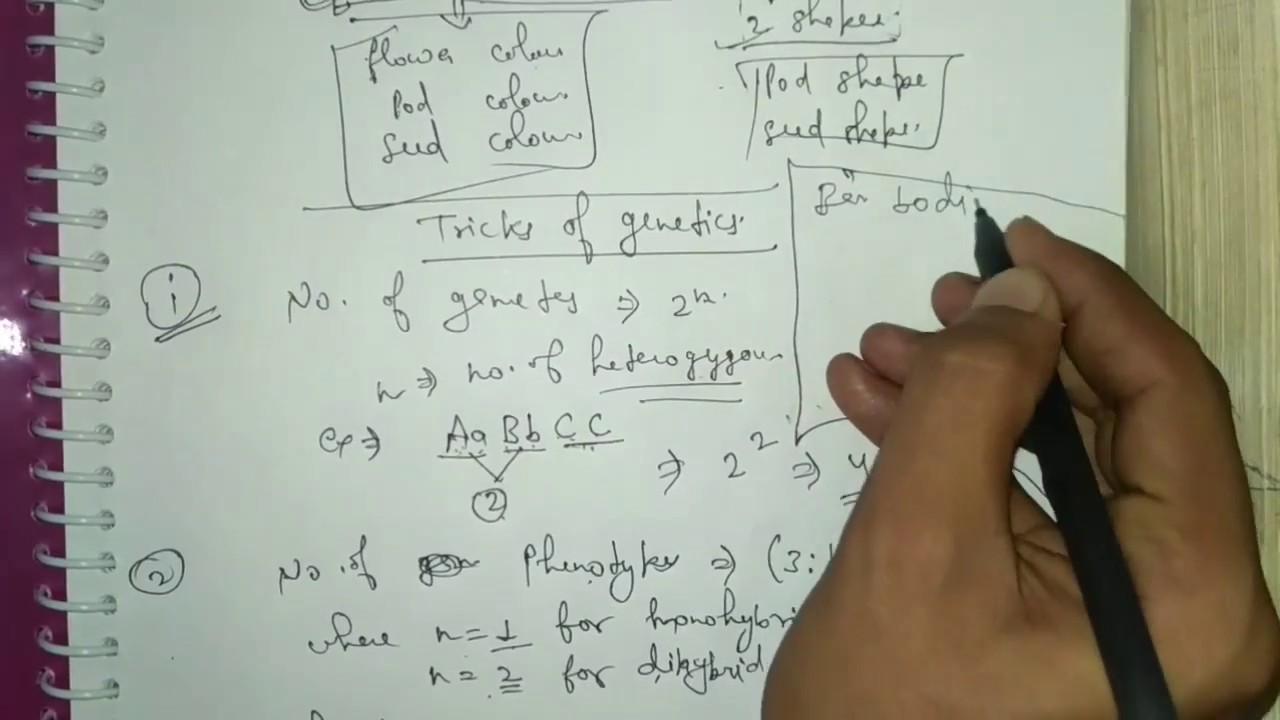 flower colour
Pod colour
seed colour
2 shapes.
Pod shape
seed shape.
Tricks of genetics.
Bar bodi
i
No. of gemetes ⇒ 2n.
n ⇒ no. of heterogygous
Ex ⇒ Aa Bb CC ⇒ 2² ⇒ 4
2
2
No. of Phenotykes ⇒ (3:
where n = 1 for monohybri
n = 2 for dihybrid